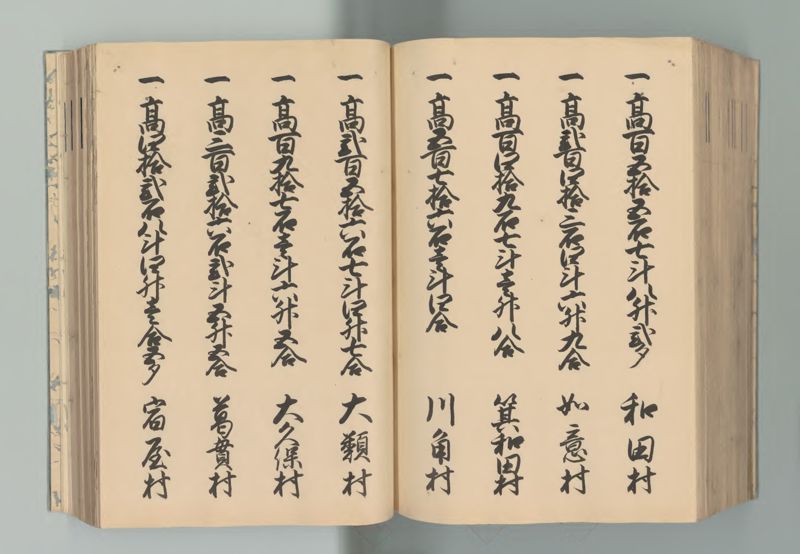 一 高百五拾五石七斗八升弐夕 和田村
一 高弐百四拾三石四斗六升九合 如意村
一 高百四拾九石七斗壱升八合 箕和田村
一 高五百七拾六石壱斗四合 川角村
一 高弐百五拾六石七斗四升七合 大類村
一 高百九拾七石壱斗六升五合 大久保村
一 高三百弐拾六石弐斗五升五合 葛貫村
一 高四拾弐石八斗四升壱合五夕 宿屋村